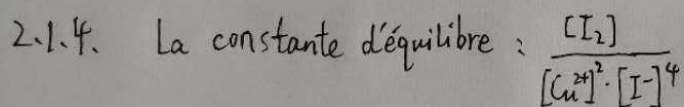 2.1.4. La constante d'équilibre : [I₂] / [Cu²⁺]² · [I⁻]⁴